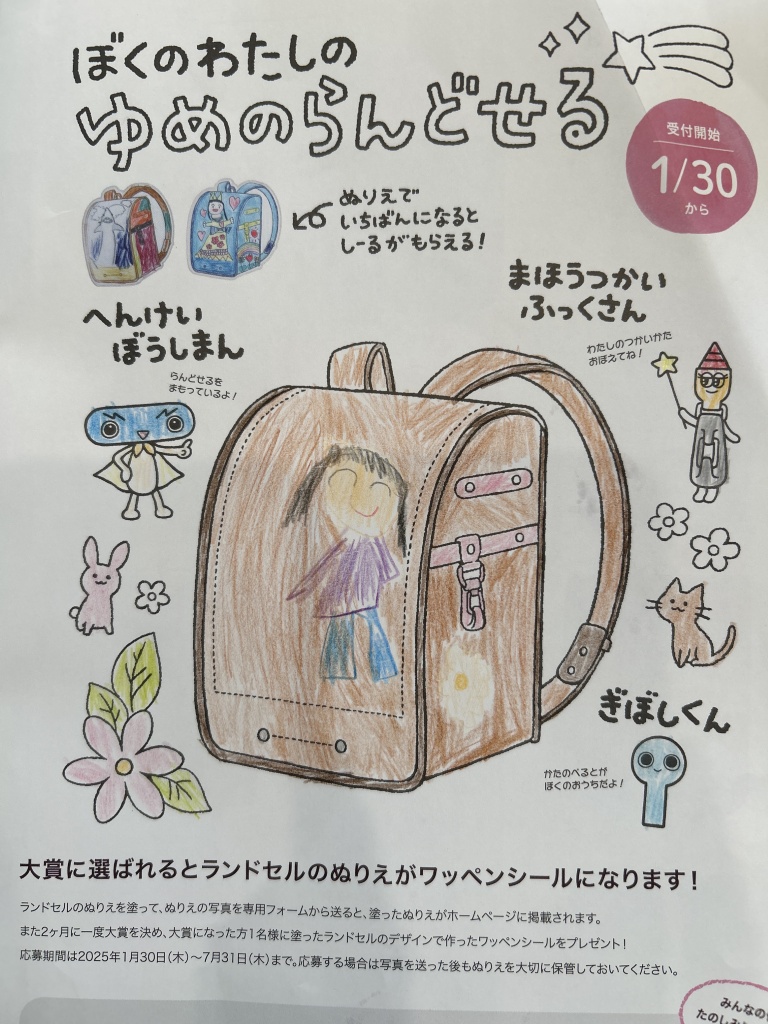 ぼくのわたしの
ゆめのらんどせる
受付開始
1/30
から
ぬりえで
いちばんになると
しーるがもらえる!
まほうつかい
ふっくさん
わたしのつかいかた
おぼえてね!
へんけい
ぼうしまん
らんどせるを
まもっているよ!
ぎぼしくん
かたのべるとが
ぼくのおうちだよ!
大賞に選ばれるとランドセルのぬりえがワッペンシールになります!
ランドセルのぬりえを塗って、ぬりえの写真を専用フォームから送ると、塗ったぬりえがホームページに掲載されます。
また2ヶ月に一度大賞を決め、大賞になった方1名様に塗ったランドセルのデザインで作ったワッペンシールをプレゼント!
応募期間は2025年1月30日(木)〜7月31日(木)まで。応募する場合は写真を送った後もぬりえを大切に保管しておいてください。
みんなの
たのしみ